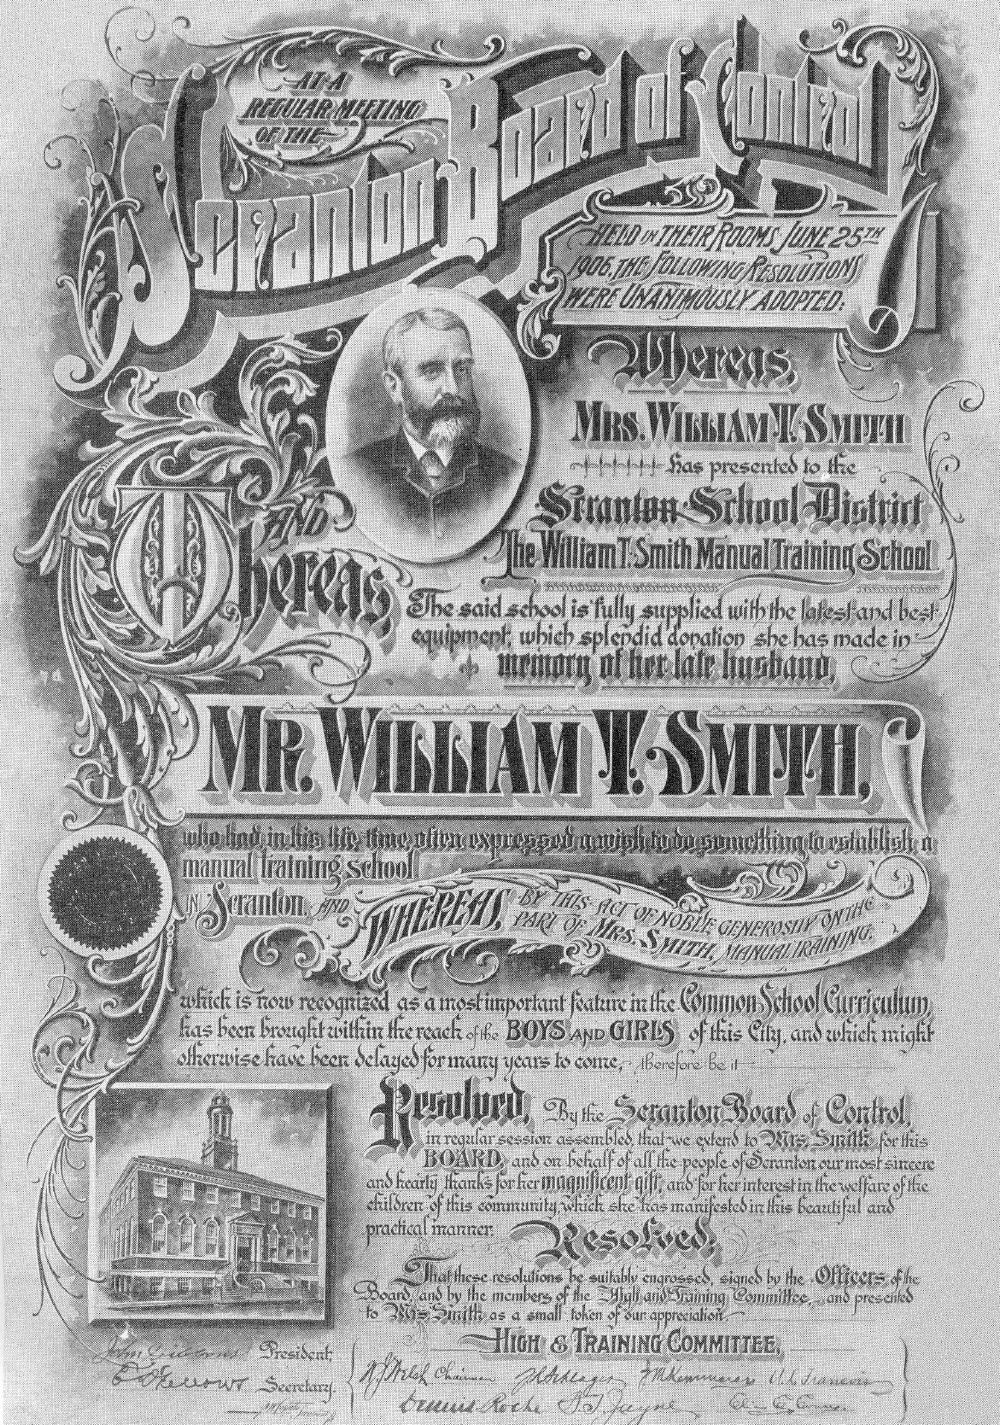 AT A
REGULAR MEETING
OF THE
Scranton Board of Control
HELD IN THEIR ROOMS JUNE 25TH
1906, THE FOLLOWING RESOLUTIONS
WERE UNANIMOUSLY ADOPTED:
Whereas,
MRS. WILLIAM T. SMITH
has presented to the
Scranton School District
The William T. Smith Manual Training School
AND
Whereas
The said school is fully supplied with the latest and best
equipment, which splendid donation she has made in
memory of her late husband,
MR. WILLIAM T. SMITH,
who had, in his life time, often expressed a wish to do something to establish a
manual training school
IN Scranton, AND WHEREAS, BY THIS ACT OF NOBLE GENEROSITY ON THE
PART OF MRS. SMITH, MANUAL TRAINING,
which is now recognized as a most important feature in the Common School Curriculum,
has been brought within the reach of the BOYS AND GIRLS of this City, and which might
otherwise have been delayed for many years to come, therefore be it
Resolved, By the Scranton Board of Control,
in regular session assembled, that we extend to Mrs. Smith for this
BOARD, and on behalf of all the people of Scranton our most sincere
and hearty thanks for her magnificent gift, and for her interest in the welfare of the
children of this community, which she has manifested in this beautiful and
practical manner.
Resolved,
That these resolutions be suitably engrossed, signed by the Officers of the
Board, and by the members of the High and Training Committee, and presented
to Mrs. Smith as a small token of our appreciation.
HIGH & TRAINING COMMITTEE,
John Gibbons President,
Fellows Secretary.
Welsh Chairman
Dennis Roche
Jayne